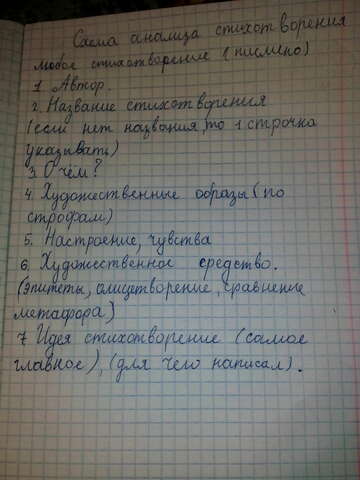 Схема анализа стихотворения
любое стихотворение (письмено)
1 Автор.
2. Название стихотворения
(если нет названия, то 1 строчка
указывать)
3. О чём?
4. Художественные образы (по
строфам)
5. Настроение, чувства
6. Художественное средство.
(Эпитеты, олицетворение, сравнение
метафора)
7. Идея стихотворение (самое
главное), (для чего написал).